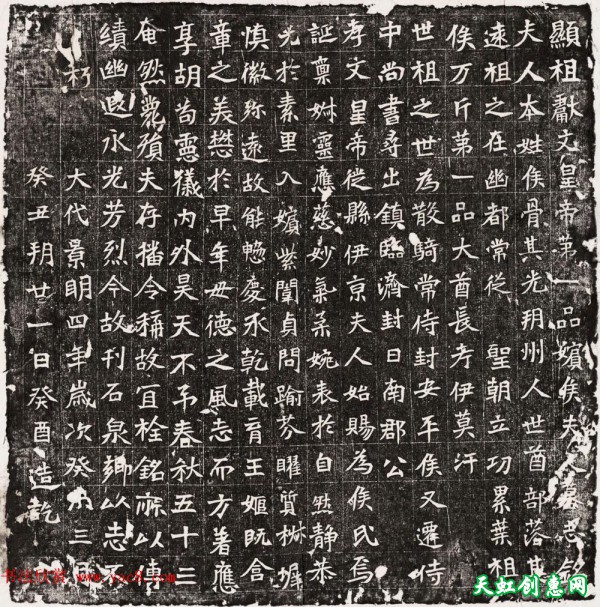 顯祖獻文皇帝第一品嬪侯夫人墓志銘
夫人本姓侯骨其先朔州人世酋部落其
遠祖之在幽都常從聖朝立功累葉祖
俟万斤第一品大酋長考伊莫汗
世祖之世為散騎常侍封安平侯又遷侍
中尚書尋出鎮臨濟封日南郡公
孝文皇帝徙縣伊京夫人始賜為侯氏焉
誕稟妙靈應慈妙氣柔婉表於自然静恭
光於素里入嬪紫闈貞問踰芬曜質椒墀
慎徽弥遠故能憋慶承乾載育王姬既含
章之美懋於早年母德之風志而方著應
享胡耇憲儀内外昊天不弔春秋五十三
奄然薨殞夫存播令稱故宜栓銘亦以傳
績幽遐永光芳烈今故刊石泉鄉以志不
朽
大代景明四年歲次癸未三月
癸丑朔廿一日癸酉造訖
书法欣赏 www.yac8.com
天虹创意网